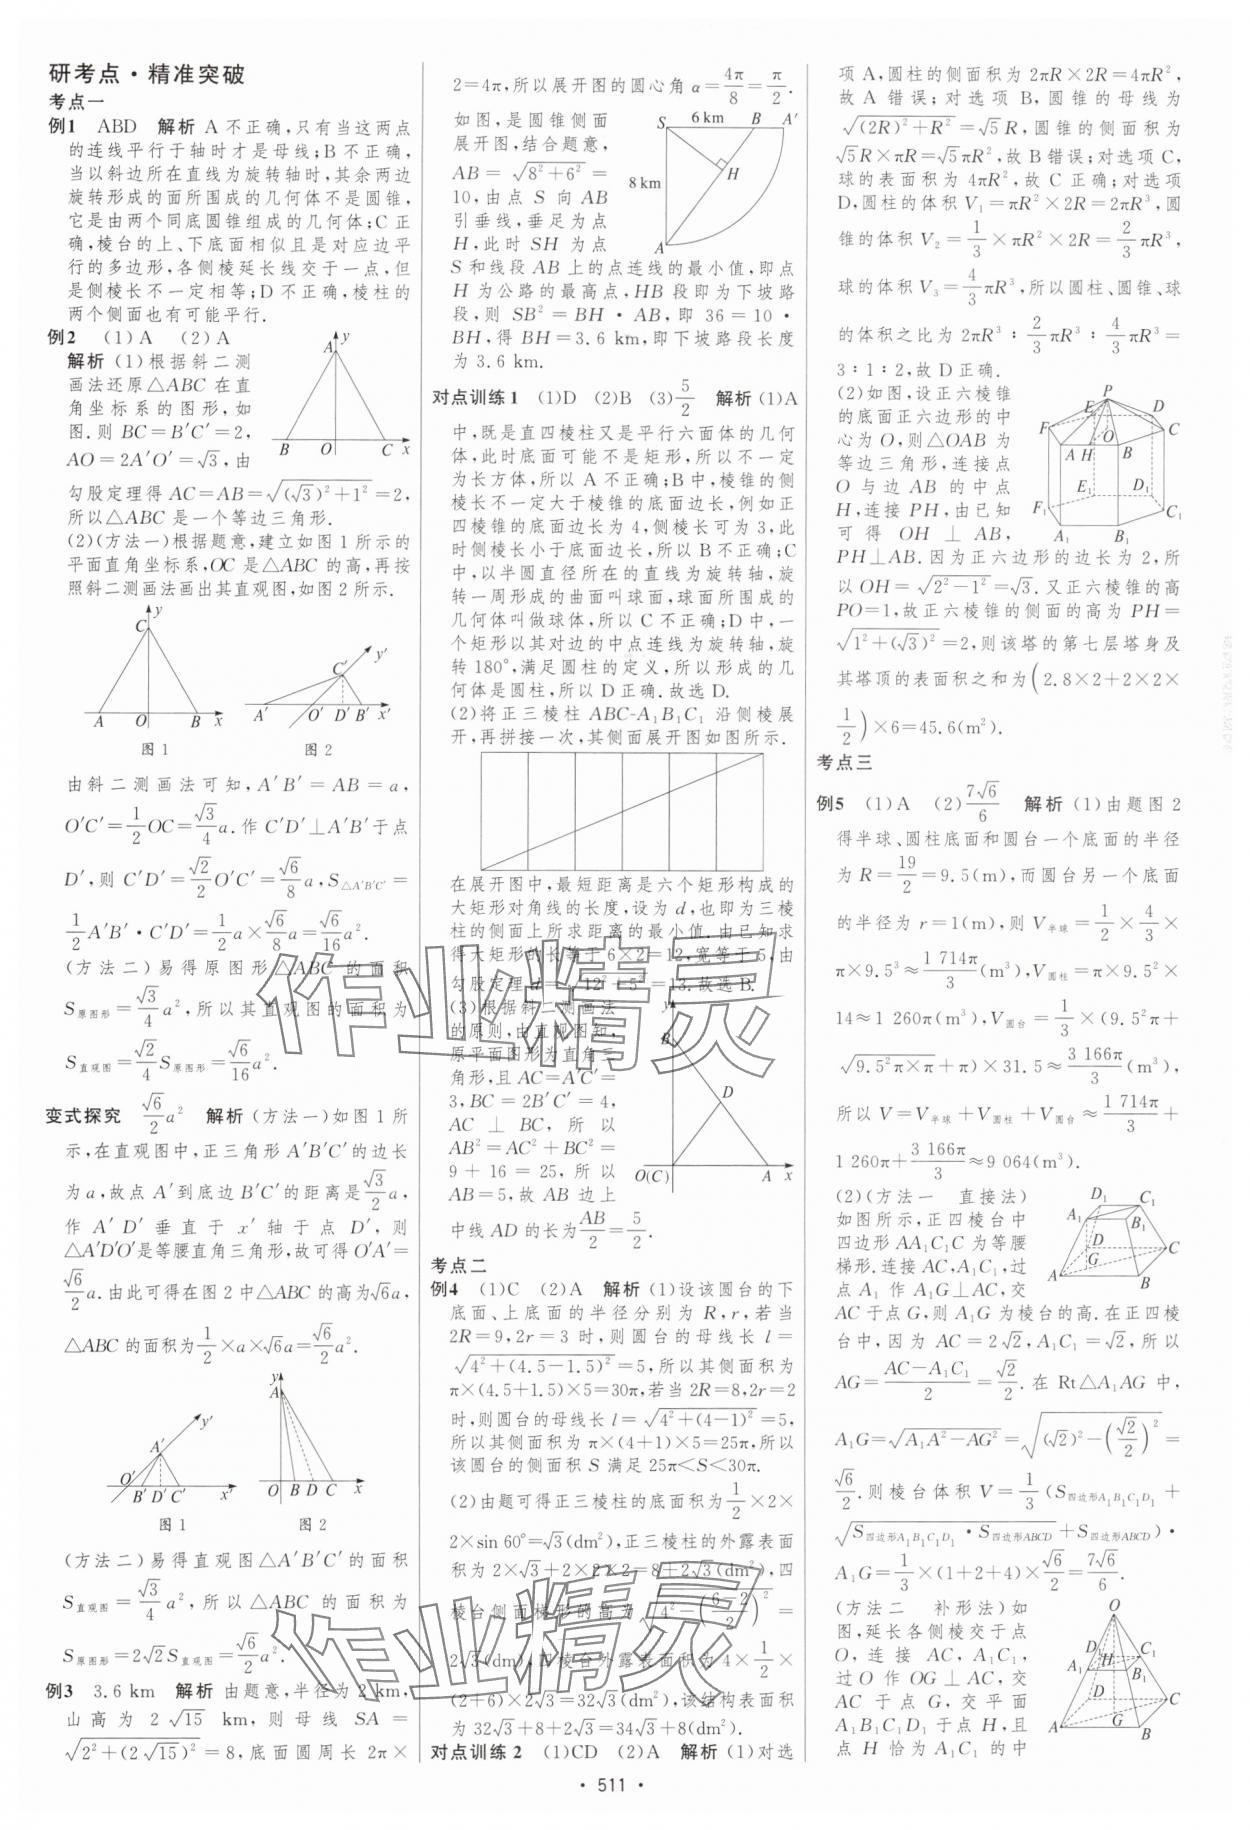 研考点·精准突破
考点一
例1 ABD 解析 A不正确,只有当这两点
的连线平行于轴时才是母线;B不正确,
当以斜边所在直线为旋转轴时,其余两边
旋转形成的面所围成的几何体不是圆锥,
它是由两个同底圆锥组成的几何体;C正
确,棱台的上、下底面相似且是对应边平
行的多边形,各侧棱延长线交于一点,但
是侧棱长不一定相等;D不正确,棱柱的
两个侧面也有可能平行.
例2 (1)A (2)A
解析 (1)根据斜二测
画法还原△ABC在直
角坐标系的图形,如
图.则BC=B′C′=2,
AO=2A′O′=√3,由
勾股定理得AC=AB=√((√3)²+1²)=2,
所以△ABC是一个等边三角形.
y A B O C x
(2)(方法一)根据题意,建立如图1所示的
平面直角坐标系,OC是△ABC的高,再按
照斜二测画法画出其直观图,如图2所示.
y C A O B x
y′ C′ A′ O′ D′ B′ x′
图1 图2
由斜二测画法可知,A′B′=AB=a,
O′C′=1/2OC=√3/4a.作C′D′⊥A′B′于点
D′,则C′D′=√2/2O′C′=√6/8a,S△A′B′C′=
1/2A′B′·C′D′=1/2a×√6/8a=√6/16a².
(方法二)易得原图形△ABC的面积
S原图形=√3/4a²,所以其直观图的面积为
S直观图=√2/4S原图形=√6/16a².
变式探究 √6/2a² 解析 (方法一)如图1所
示,在直观图中,正三角形A′B′C′的边长
为a,故点A′到底边B′C′的距离是√3/2a,
作A′D′垂直于x′轴于点D′,则
△A′D′O′是等腰直角三角形,故可得O′A′=
√6/2a.由此可得在图2中△ABC的高为√6a,
△ABC的面积为1/2×a×√6a=√6/2a².
y′ A′ O′ B′ D′ C′ x′
y A O B D C x
图1 图2
(方法二)易得直观图△A′B′C′的面积
S直观图=√3/4a²,所以△ABC的面积为
S原图形=2√2S直观图=√6/2a².
例3 3.6 km 解析 由题意,半径为2 km,
山高为2√15 km,则母线SA=
√(2²+(2√15)²)=8,底面圆周长2π×
2=4π,所以展开图的圆心角α=4π/8=π/2.
如图,是圆锥侧面
展开图,结合题意,
AB=√(8²+6²)=
10,由点S向AB
引垂线,垂足为点
H,此时SH为点
S 6 km B A′
8 km H
A
S和线段AB上的点连线的最小值,即点
H为公路的最高点,HB段即为下坡路
段,则SB²=BH·AB,即36=10·
BH,得BH=3.6 km,即下坡路段长度
为3.6 km.
对点训练1 (1)D (2)B (3)5/2 解析 (1)A
中,既是直四棱柱又是平行六面体的几何
体,此时底面可能不是矩形,所以不一定
为长方体,所以A不正确;B中,棱锥的侧
棱长不一定大于棱锥的底面边长,例如正
四棱锥的底面边长为4,侧棱长可为3,此
时侧棱长小于底面边长,所以B不正确;C
中,以半圆直径所在的直线为旋转轴,旋
转一周形成的曲面叫球面,球面所围成的
几何体叫做球体,所以C不正确;D中,一
个矩形以其对边的中点连线为旋转轴,旋
转180°,满足圆柱的定义,所以形成的几
何体是圆柱,所以D正确.故选D.
(2)将正三棱柱ABC-A₁B₁C₁沿侧棱展
开,再拼接一次,其侧面展开图如图所示.
在展开图中,最短距离是六个矩形构成的
大矩形对角线的长度,设为d,也即为三棱
柱的侧面上所求距离的最小值.由已知求
得大矩形的长等于6×2=12,宽等于5,由
勾股定理d=√(12²+5²)=13.故选B.
(3)根据斜二测画法
的原则,由直观图知,
原平面图形为直角三
角形,且AC=A′C′=
3,BC=2B′C′=4,
AC⊥BC,所以
AB²=AC²+BC²=
9+16=25,所以
AB=5,故AB边上
中线AD的长为AB/2=5/2.
y B D O(C) A x
考点二
例4 (1)C (2)A 解析 (1)设该圆台的下
底面、上底面的半径分别为R,r,若当
2R=9,2r=3时,则圆台的母线长l=
√(4²+(4.5-1.5)²)=5,所以其侧面积为
π×(4.5+1.5)×5=30π,若当2R=8,2r=2
时,则圆台的母线长l=√(4²+(4-1)²)=5,
所以其侧面积为π×(4+1)×5=25π,所以
该圆台的侧面积S满足25π<S<30π.
(2)由题可得正三棱柱的底面积为1/2×2×
2×sin 60°=√3(dm²),正三棱柱的外露表面
积为2×√3+2×2×2=8+2√3(dm²),四
棱台侧面梯形的高为√(4²-((6-2)/2)²)=
2√3(dm),四棱台外露表面积为4×1/2×
(2+6)×2√3=32√3(dm²),该结构表面积
为32√3+8+2√3=34√3+8(dm²).
对点训练2 (1)CD (2)A 解析 (1)对选
项A,圆柱的侧面积为2πR×2R=4πR²,
故A错误;对选项B,圆锥的母线为
√((2R)²+R²)=√5R,圆锥的侧面积为
√5R×πR=√5πR²,故B错误;对选项C,
球的表面积为4πR²,故C正确;对选项
D,圆柱的体积V₁=πR²×2R=2πR³,圆
锥的体积V₂=1/3×πR²×2R=2/3πR³,
球的体积V₃=4/3πR³,所以圆柱、圆锥、球
的体积之比为2πR³∶2/3πR³∶4/3πR³=
3∶1∶2,故D正确.
(2)如图,设正六棱锥
的底面正六边形的中
心为O,则△OAB为
等边三角形,连接点
O与边AB的中点
H,连接PH,由已知
可得OH⊥AB,
P E D F O C A H B E₁ D₁ F₁ C₁ A₁ B₁
PH⊥AB.因为正六边形的边长为2,所
以OH=√(2²-1²)=√3.又正六棱锥的高
PO=1,故正六棱锥的侧面的高为PH=
√(1²+(√3)²)=2,则该塔的第七层塔身及
其塔顶的表面积之和为(2.8×2+2×2×
1/2)×6=45.6(m²).
考点三
例5 (1)A (2)7√6/6 解析 (1)由题图2
得半球、圆柱底面和圆台一个底面的半径
为R=19/2=9.5(m),而圆台另一个底面
的半径为r=1(m),则V半球=1/2×4/3×
π×9.5³≈1 714π/3(m³),V圆柱=π×9.5²×
14≈1 260π(m³),V圆台=1/3×(9.5²π+
√(9.5²π×π)+π)×31.5≈3 166π/3(m³),
所以V=V半球+V圆柱+V圆台≈1 714π/3+
1 260π+3 166π/3≈9 064(m³).
(2)(方法一 直接法)
如图所示,正四棱台中
四边形AA₁C₁C为等腰
梯形.连接AC,A₁C₁,过
点A₁作A₁G⊥AC,交
D₁ C₁ A₁ B₁ D G C A B
AC于点G,则A₁G为棱台的高.在正四棱
台中,因为AC=2√2,A₁C₁=√2,所以
AG=(AC-A₁C₁)/2=√2/2.在Rt△A₁AG中,
A₁G=√(A₁A²-AG²)=√((√2)²-(√2/2)²)=
√6/2.则棱台体积V=1/3(S四边形A₁B₁C₁D₁+
√(S四边形A₁B₁C₁D₁·S四边形ABCD)+S四边形ABCD)·
A₁G=1/3×(1+2+4)×√6/2=7√6/6.
(方法二 补形法)如
图,延长各侧棱交于点
O,连接AC,A₁C₁,
过O作OG⊥AC,交
AC于点G,交平面
A₁B₁C₁D₁于点H,且
点H恰为A₁C₁的中
O D₁ H C₁ A₁ B₁ D C G A B
作业精灵
作业精灵
·511·